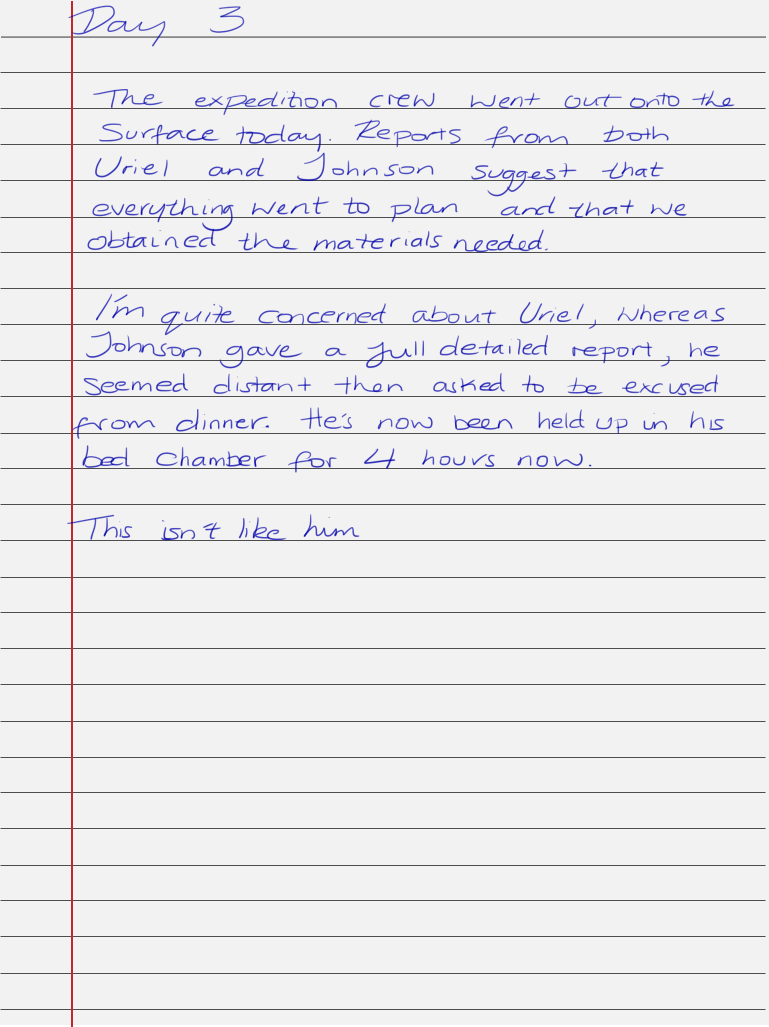 Day 3
The expedition crew went out onto the
Surface today. Reports from both
Uriel and Johnson suggest that
everything went to plan and that we
obtained the materials needed.
I'm quite concerned about Uriel, whereas
Johnson gave a full detailed report, he
seemed distant then asked to be excused
from dinner. He's now been held up in his
bed chamber for 4 hours now.
This isn't like him